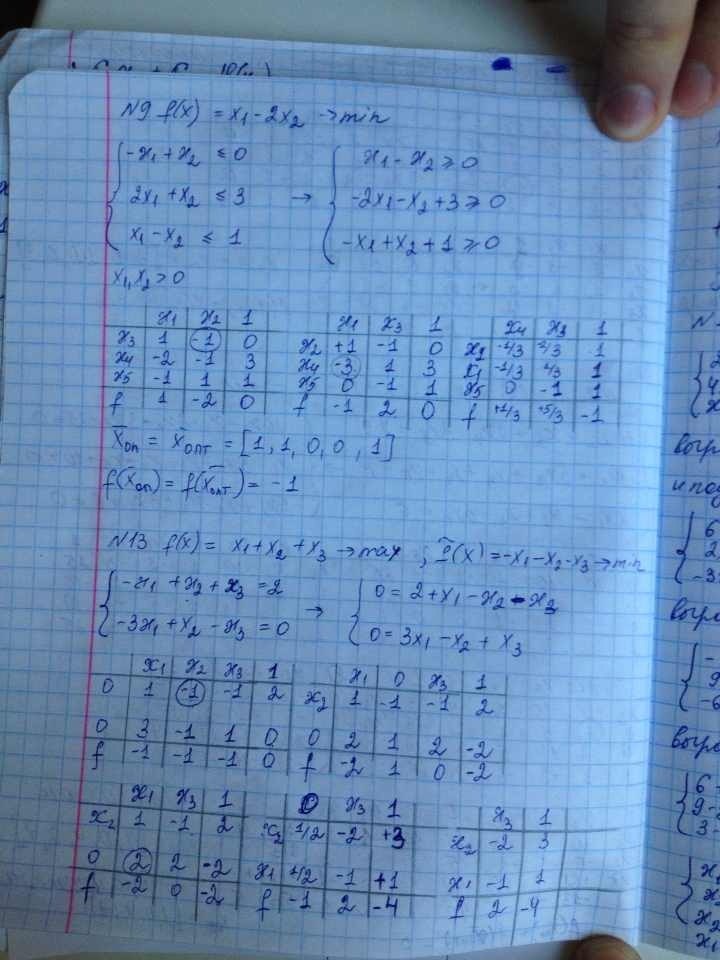 N9 f(x) = x₁ - 2x₂ → min
{ -x₁ + x₂ ≤ 0
2x₁ + x₂ ≤ 3
x₁ - x₂ ≤ 1
→ { x₁ - x₂ ≥ 0
-2x₁ - x₂ + 3 ≥ 0
-x₁ + x₂ + 1 ≥ 0
x₁, x₂ ≥ 0
x₁ x₂ 1
x₃ 1 -1 0
x₄ -2 -1 3
x₅ -1 1 1
f 1 -2 0
x₁ x₃ 1
x₂ +1 -1 0
x₄ -3 1 3
x₅ 0 -1 1
f -1 2 0
x₄ x₃ 1
x₂ -1/3 -2/3 1
x₁ -1/3 1/3 1
x₅ 0 -1 1
f +1/3 +5/3 -1
x̄оп = x̄опт = [1, 1, 0, 0, 1]
f(x̄оп) = f(x̄опт) = -1
N13 f(x) = x₁ + x₂ + x₃ → max ; f̃(x) = -x₁ - x₂ - x₃ → min
{ -x₁ + x₂ + x₃ = 2
-3x₁ + x₂ - x₃ = 0
→ { 0 = 2 + x₁ - x₂ - x₃
0 = 3x₁ - x₂ + x₃
x₁ x₂ x₃ 1
0 1 -1 -1 2
0 3 -1 1 0
f -1 -1 -1 0
x₁ 0 x₃ 1
x₂ 1 -1 -1 2
0 2 1 2 -2
f -2 1 0 -2
x₁ x₃ 1
x₂ 1 -1 2
0 2 2 -2
f -2 0 -2
0 x₃ 1
x₂ 1/2 -2 +3
x₁ +/2 -1 +1
f -1 2 -4
x₃ 1
x₂ -2 3
x₁ -1 1
f 2 -4